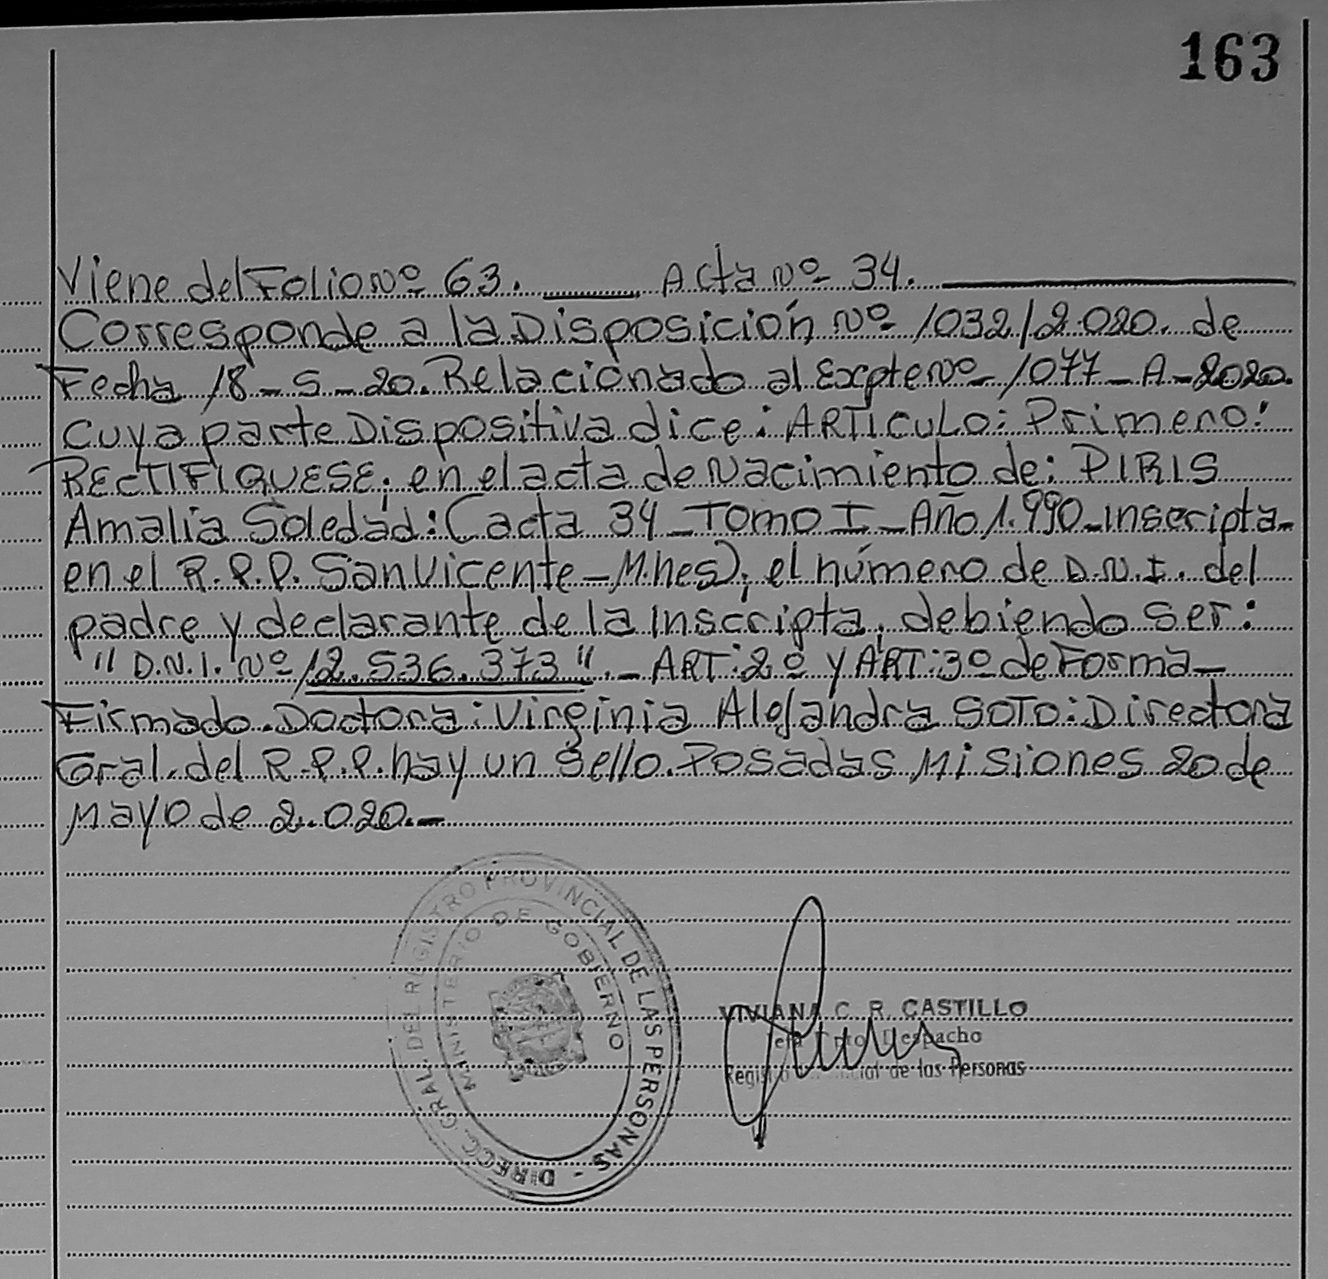 163
Viene del Folio Nº 63. ____ Acta Nº 34. ____
Corresponde a la Disposición Nº 1032/2.020. de
Fecha 18-5-20. Relacionado al Expte Nº 1077-A-2020.
cuya parte Dispositiva dice: ARTICULO: Primero:
RECTIFIQUESE; en el acta de Nacimiento de: PIRIS
Amalia Soledad: (acta 34-Tomo I-Año 1.990-inscripta-
en el R.P.P. San Vicente-Mnes), el número de D.N.I. del
padre y declarante de la Inscripta, debiendo Ser:
"D.N.I. Nº 12.536.373".- ART: 2º y ART: 3º de Forma-
Firmado. Doctora: Virginia Alejandra SOTO: Directora
Gral. del R.P.P. hay un Sello. Posadas Misiones 20 de
Mayo de 2.020.-
DIRECC. GRAL. DEL REGISTRO PROVINCIAL DE LAS PERSONAS -
MINISTERIO DE GOBIERNO
VIVIANA C. R. CASTILLO
Despacho
de las Personas